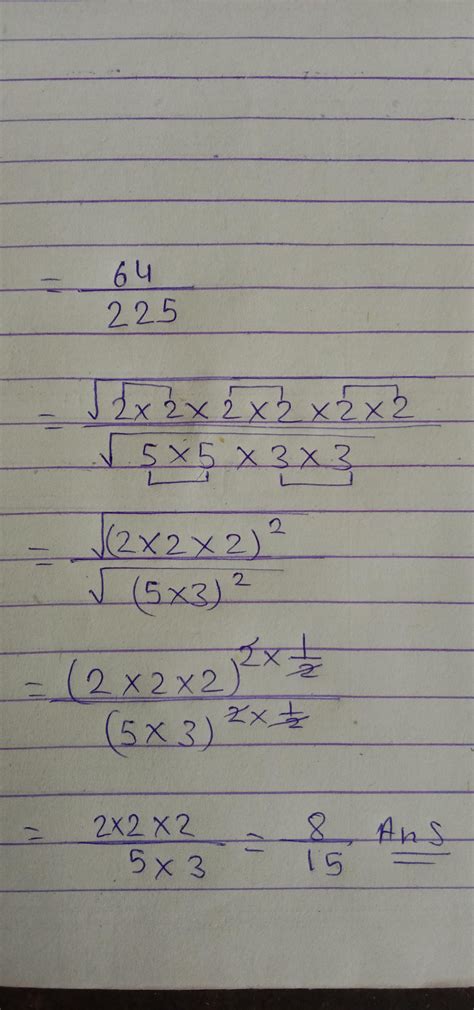 = 64/225
= √2×2×2×2×2×2 / √5×5×3×3
= √(2×2×2)² / √(5×3)²
= (2×2×2)^2×1/2 / (5×3)^2×1/2
= 2×2×2 / 5×3 = 8/15 Ans